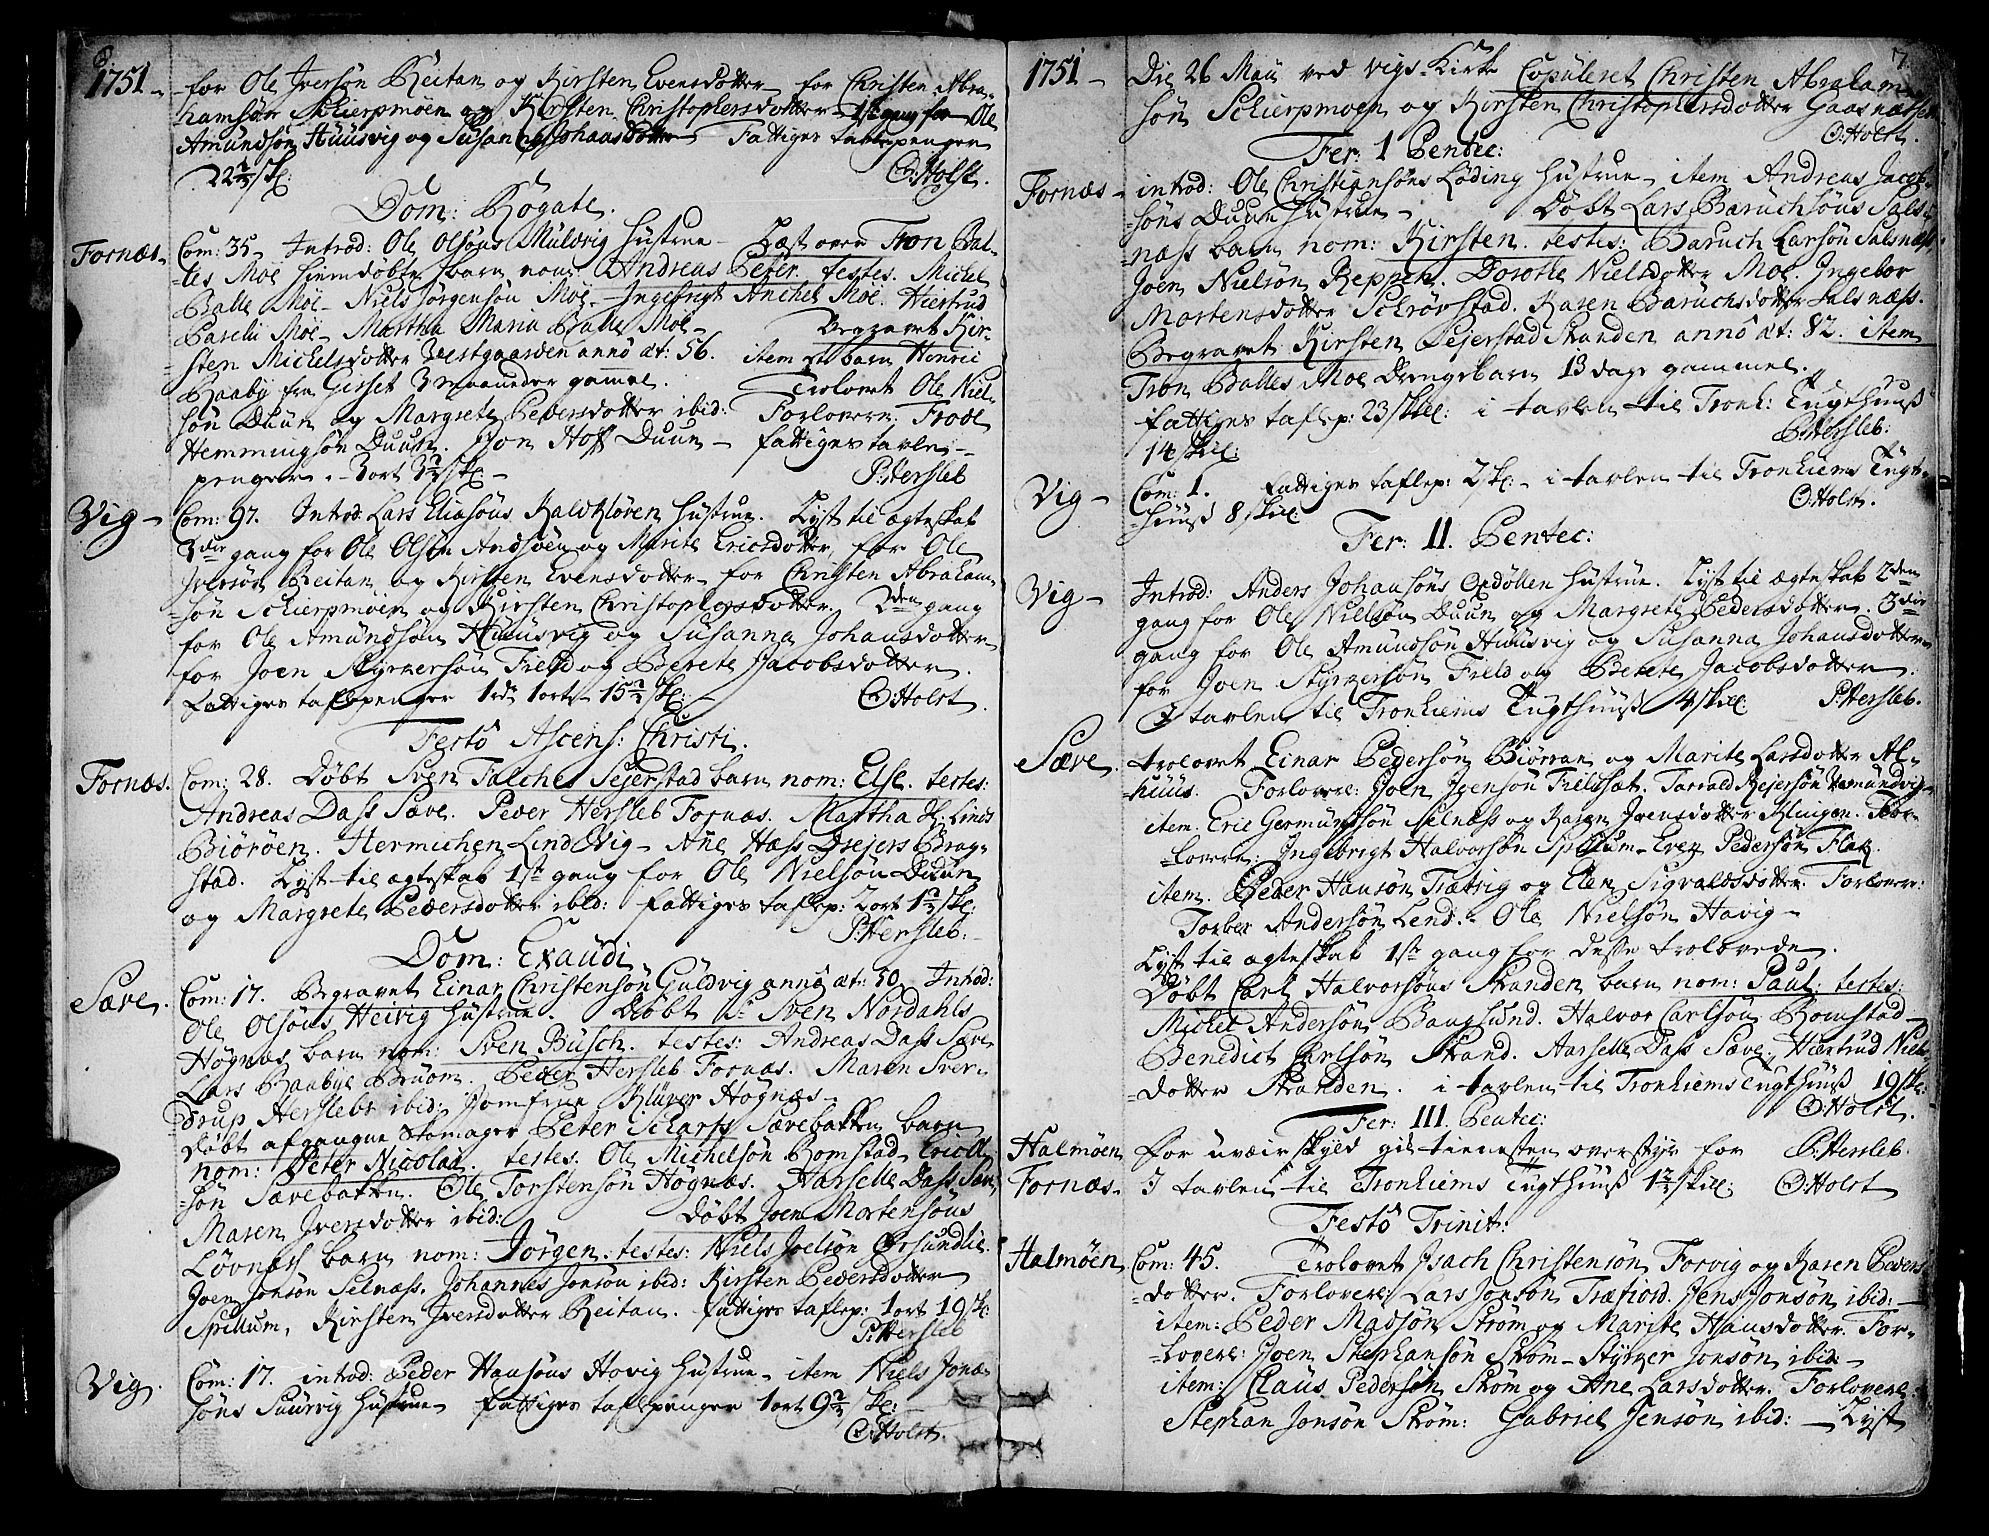 6.
1751.
for Ole Iversøn Reitan og Kirsten Evensdotter for Christen Abra-
hamsøn Schierpmoen og Kirsten Christophersdotter 1ste gang for Ole
Amundsøn Huusvig og Susanna Johansdotter Fattiges tavlepenger
22½ sk: O: Holst.
Dom: Rogate.
Fornæs.
Com: 35. Introd: Ole Olsøns Mulvig hustrue. Læst over Tron Bal-
les Moe hiemdøbte barn nom: Andreas Peter. testes. Michel
Balle Moe. Niels Jørgensøn Moe. Ingefrigt Anchel Moe. Hiertrud
Pareli Moe. Martha Maria Balle Moe. Begravet Kir-
sten Michelsdotter Vestgaarden anno æt: 56. item et barn Henric
Raaby fra Gisset 3 maaneder gammel. Trolovet Ole Niel-
søn Duun og Margrete Pedersdotter ibid: Forlovere: Frode
Hemmingsøn Duun. Jon Hoff Duun. fattiges tavle-
penger. 3 ort 3½ sk. P: Hersleb
Vig.
Com: 97. Introd. Lars Eliasøns Kalvkløven hustrue. Lyst til ægteskab
3die gang for Ole Olsen Andsøen og Marite Ericsdotter, for Ole
Iversøn Reitan og Kirsten Evensdotter for Christen Abraham-
søn Schierpmoen og Kirsten Christophersdotter. 2den gang
for Ole Amundsøn Huusvig og Susanna Johansdotter
for Joen Styrkersøn Field og Berete Jacobsdotter.
Fattiges taflepenger 1 rd. 1 ort 15½ sk: O: Holst.
Festo Ascens: Christi.
Fornæs.
Com: 28. Døbt Sven Falches Sejerstad barn nom: Else. testes:
Andreas Dass Sæve. Peder Hersleb Fornæs. Martha Sl: Linds
Biørøen. Hermichen Lind Vig. Ane Hass Drejers Brag-
stad. Lyst til ægteskab 1ste gang for Ole Nielsøn Duun
og Margrete Pedersdotter ibid: fattiges taflep: 2 ort 1½ sk:
P: Hersleb:
Dom: Exaudi
Sæve.
Com: 17. Begravet Einar Christensøn Guldvig anno æt: 50. Introd:
Ole Olsøns Heivig hustrue. Døbt Sr Sven Nordahls
Høgnæs barn nom: Sven Busch. testes: Andreas Dass Sæve
Lars Baabye Bruom. Peder Hersleb Fornæs. Maren Sver-
drup Herslebs ibid: Jomfrue Klüver Høgnæs.
Døbt afgangne Skomager Peter Scharfs Sævebakken barn
nom: Peter Nicolai. testes. Ole Michelsøn Romstad. Eric Ol-
søn Sævebakken. Ole Torstensøn Høgnæs. Harselle Dass Sæve
Maren Iversdotter ibid: Døbt Joen Mortensøns
Løvnæs barn nom: Jørgen. testes: Niels Joelsøn Gersundlie.
Joen Jonsøn Selnæss. Johannes Jonsøn ibid: Kirsten Pedersdotter
Spillum. Kirsten Iversdotter Reitan. fattiges taflep: 1 ort 19 sk:
P: Hersleb
Vig.
Com: 17. introd: Peder Hansøns Hovig hustrue. item Niels Jona-
søns Suurvig hustrue fattiges taflepenger 1 ort 9½ sk:
O: Holst.
7.
1751.
Die 26 Maii ved Vigs Kirke Copuleret Christen Abraham-
søn Schierpmoen og Kirsten Christophersdotter Gaasnæssen.
O: Holst.
Fer: I Pentec:
Fornæs.
introd: Ole Christiansøns Løding hustrue. item Andreas Jacob-
søns Duun hustrue. Døbt Lars Baruchsøns Sals-
næss barn nom: Kirsten. testes: Baruch Larsøn Salsnæss.
Joen Nielsøn Reppen. Dorothe Nielsdotter Moe. Ingebor
Mortensdotter Schrøvstad. Karen Baruchsdotter Salsnæss.
Begravet Kirsten Sejerstad Stranden anno æt: 82. item
Tron Balles Moe Drengebarn 13 dage gammel.
fattiges taflep: 23 skil: i tavlen til Tronh: Tugthuuß
14 skil: P: Hersleb:
Vig.
Com: 1. fattiges taflep: 2 sk: i tavlen til Tronhiems Tugt-
huuß 8 skil: O: Holst.
Fer: II. Pentec:
Vig.
Introd: Anders Johansøns Oxdøllen hustrue. Lyst til ægteskab 2den
gang for Ole Nielsøn Duun og Margrete Pedersdotter. 3die
gang for Ole Amundsøn Huusvig og Susanna Johansdotter
for Joen Styrkersøn Field og Berete Jacobsdotter.
I tavlen til Tronhiems Tugthuuß 4 skil: P: Hersleb.
Sæve.
trolovet Einar Pedersøn Biørran og Marite Larsdotter Al-
huus. Forlovere: Joen Joensøn Fieldsæt. Tarrald Rejersøn Homundvig
item. Eric Germundsøn Selnæss og Karen Joensdotter Klingen. For-
lovere: Ingebrigt Halvorsøn Spillum. Even Pedersøn Flak.
item. Peder Hansøn Trætvig og Elen Sigvaldsdotter. Forlovere:
Torber Andersøn Lend. Ole Nielsøn Havig.
Lyst til ægteskab 1ste gang for desse trolovede.
Døbt Carl Halvorsøns Stranden barn nom: Paul. testes:
Michel Andersøn Bangsund. Halvor Carlsøn Romstad
Benedict Carlsøn Strand. Aarselle Dass Sæve, Hiertrud Niels-
dotter Stranden. i tavlen til Tronhiems Tugthuuß 19 sk:
O: Holst.
Fer: III. Pentec:
Halmøen
for uvæir skyld gik tienesten overstyr for P: Hersleb.
Fornæs.
I tavlen til Tronhiems Tugthuuß 1½ skil: O: Holst
Festo Trinit:
Halmøen
Com: 45. Trolovet Isach Christensøn Forvig og Karen Peders-
dotter. Forlovere Lars Jonsøn Træfiord. Jens Jonsøn ibid:
item: Peder Madsøn Strøm og Marite Hansdotter. For-
lovere: Joen Stephansøn Strøm. Styrker Jonsøn ibid:
item: Claus Pedersøn Strøm og Ane Larsdotter. Forlovere
Stephan Jonsøn Strøm: Gabriel Jensøn ibid: Lyst